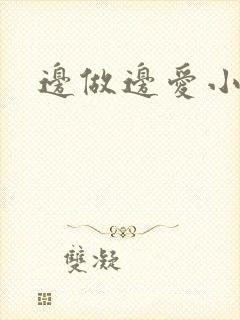 邊做邊愛小
雙凝